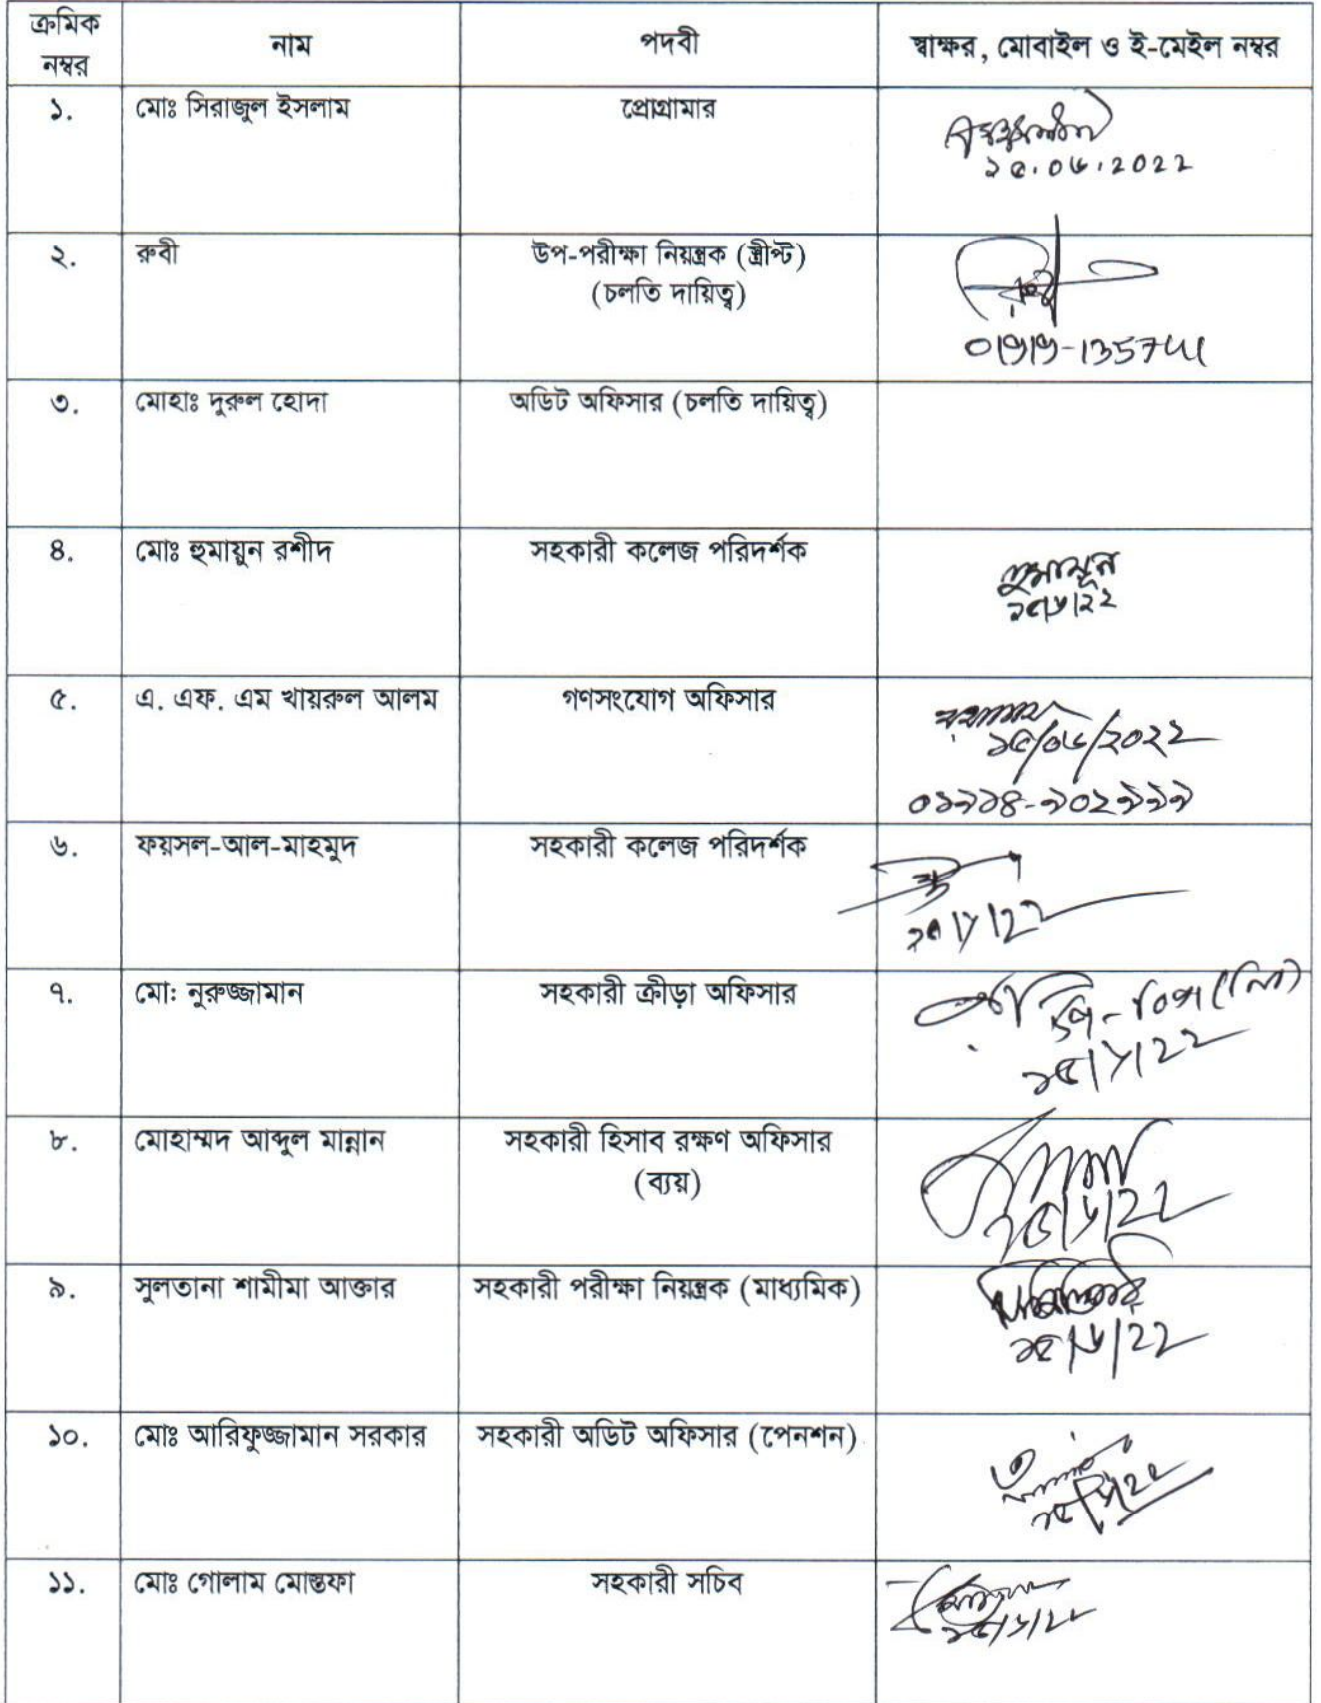 ক্রমিক নম্বর নাম পদবী স্বাক্ষর, মোবাইল ও ই-মেইল নম্বর
১. মোঃ সিরাজুল ইসলাম প্রোগ্রামার
১৫.০৬.2022
২. রুবী উপ-পরীক্ষা নিয়ন্ত্রক (স্ক্রীপ্ট)
(চলতি দায়িত্ব)
৩. মোহাঃ দুরুল হোদা অডিট অফিসার (চলতি দায়িত্ব)
৪. মোঃ হুমায়ুন রশীদ সহকারী কলেজ পরিদর্শক
হুমায়ূন
১৫/৬/২২
৫. এ. এফ. এম খায়রুল আলম গণসংযোগ অফিসার
১৫/০৬/২০২২
০১৭১৪-৯০২৯৯৯
৬. ফয়সল-আল-মাহমুদ সহকারী কলেজ পরিদর্শক
৭. মো: নুরুজ্জামান সহকারী ক্রীড়া অফিসার
১৫/৬/২২
৮. মোহাম্মদ আব্দুল মান্নান সহকারী হিসাব রক্ষণ অফিসার
(ব্যয়)
১৫/৬/২২
৯. সুলতানা শামীমা আক্তার সহকারী পরীক্ষা নিয়ন্ত্রক (মাধ্যমিক)
১৫/৬/২২
১০. মোঃ আরিফুজ্জামান সরকার সহকারী অডিট অফিসার (পেনশন)
১৫/৬/২২
১১. মোঃ গোলাম মোস্তফা সহকারী সচিব
১৫/৬/২২